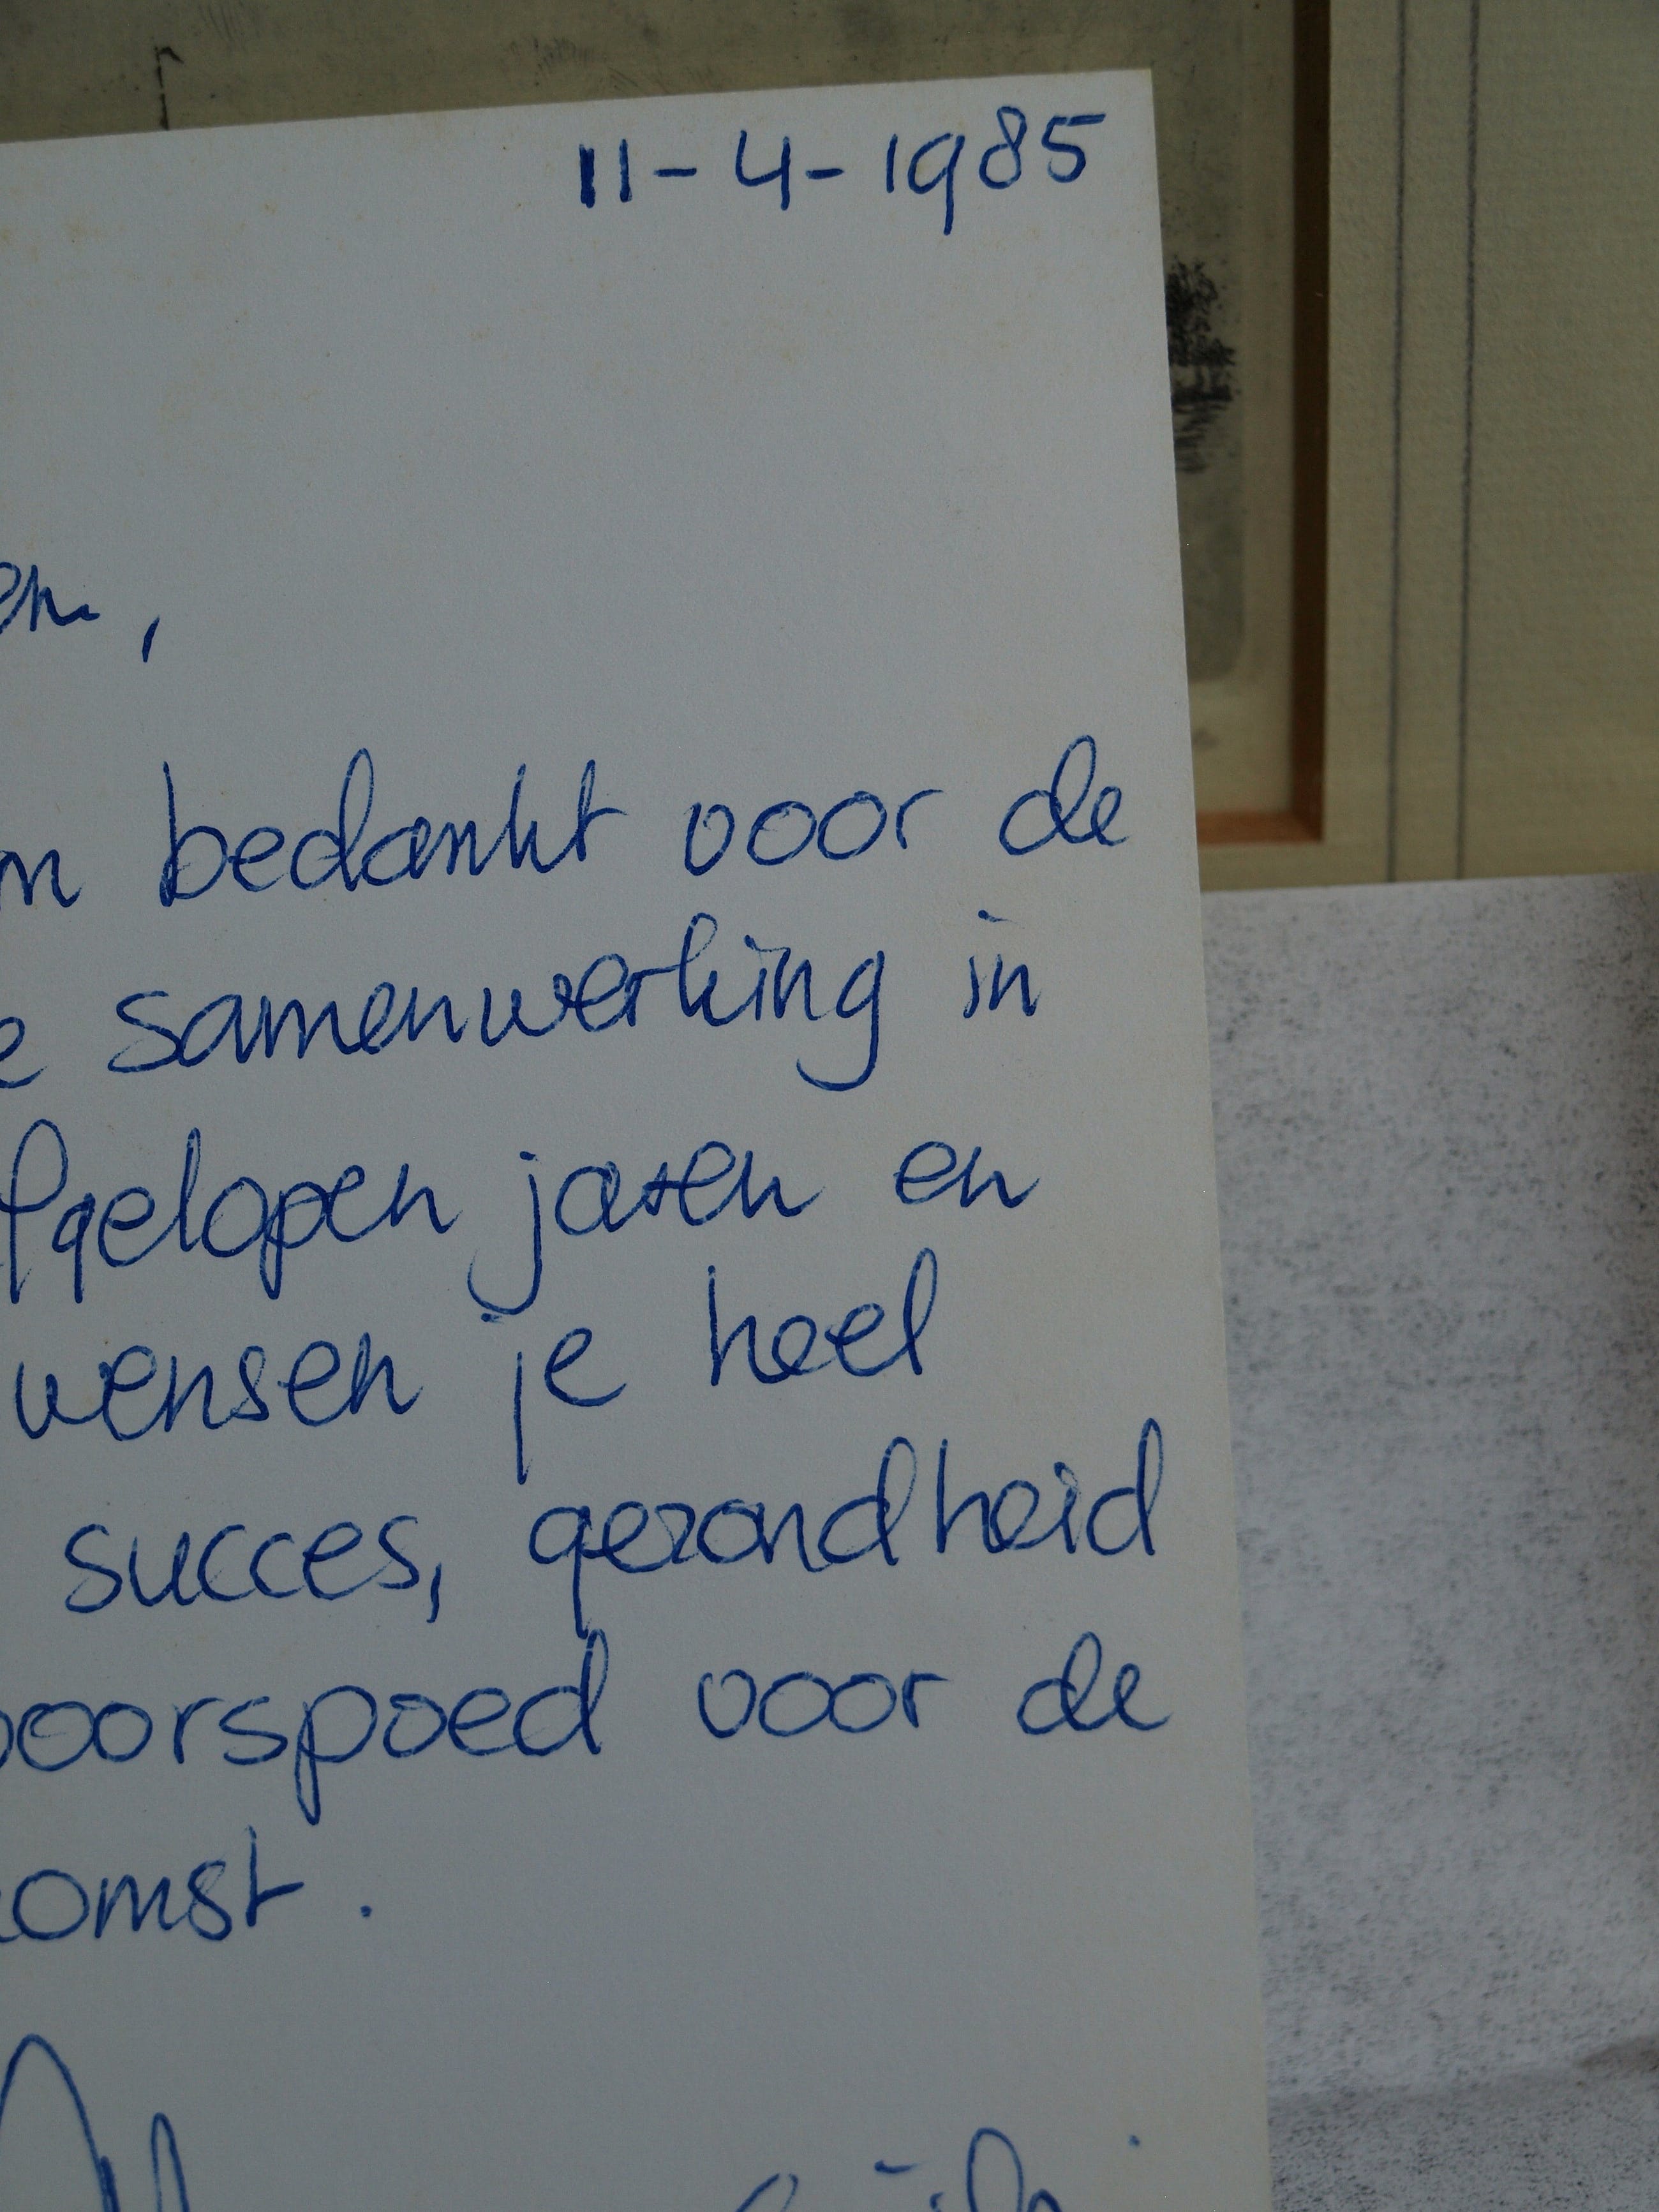 11-4-1985
em,
m bedankt voor de
e samenwerking in
fgelopen jaren en
wensen je heel
succes, gezondheid
oorspoed voor de
omst.